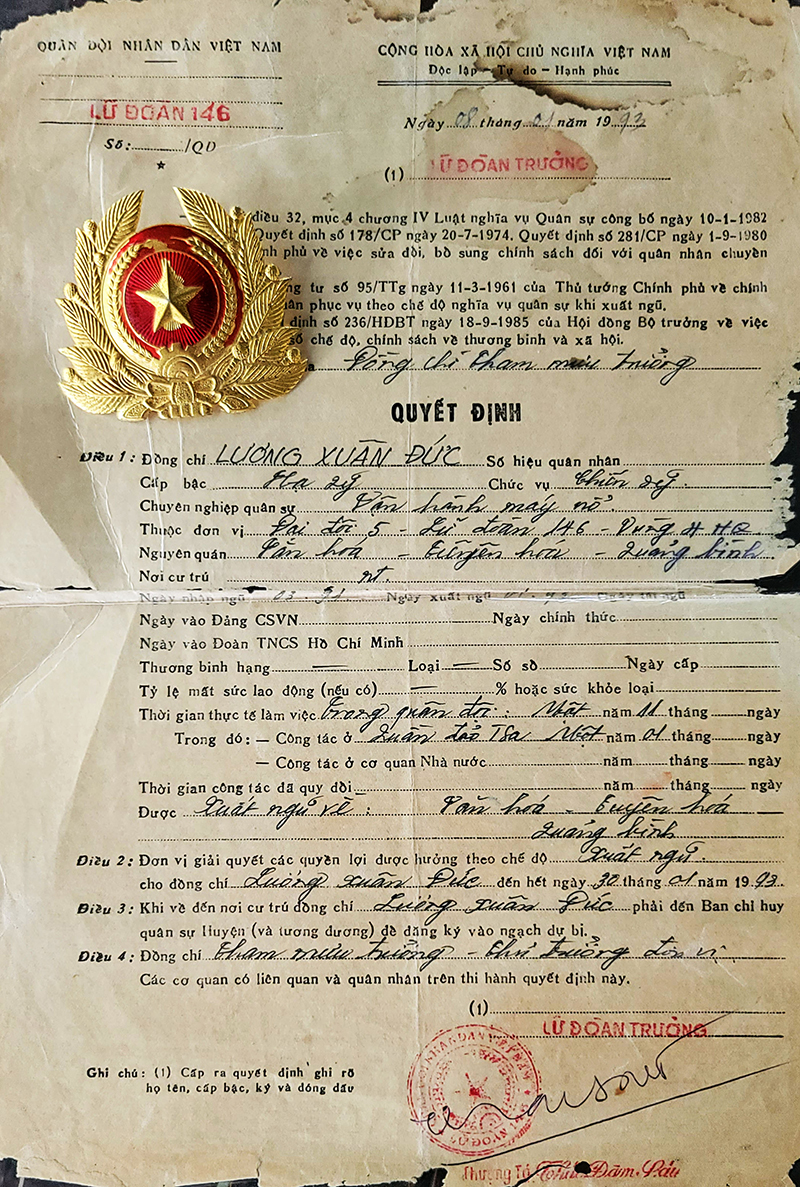 QUÂN ĐỘI NHÂN DÂN VIỆT NAM
LỮ ĐOÀN 146
Số: /QĐ
CỘNG HÒA XÃ HỘI CHỦ NGHĨA VIỆT NAM
Độc lập - Tự do - Hạnh phúc
Ngày 08 tháng 01 năm 1993
(1) LỮ ĐOÀN TRƯỞNG
điều 32, mục 4 chương IV Luật nghĩa vụ Quân sự công bố ngày 10-1-1982
Quyết định số 178/CP ngày 20-7-1974. Quyết định số 281/CP ngày 1-9-1980
phủ về việc sửa đổi, bổ sung chính sách đối với quân nhân chuyên
tư số 95/TTg ngày 11-3-1961 của Thủ tướng Chính phủ về chính
phục vụ theo chế độ nghĩa vụ quân sự khi xuất ngũ.
định số 236/HDBT ngày 18-9-1985 của Hội đồng Bộ trưởng về việc
số chế độ, chính sách về thương binh và xã hội.
Đồng chí tham mưu trưởng
QUYẾT ĐỊNH
Điều 1: Đồng chí LƯƠNG XUÂN ĐỨC Số hiệu quân nhân
Cấp bậc Hạ sỹ Chức vụ Chiến sỹ.
Chuyên nghiệp quân sự Vận hành máy nổ.
Thuộc đơn vị Đại đội 5 - Lữ đoàn 146 - Vùng 4 HQ
Nguyên quán Văn hoá - Tuyên hoá - Quảng bình.
Nơi cư trú nt.
Ngày nhập ngũ 03-91. Ngày xuất ngũ Ngày tái ngũ
Ngày vào Đảng CSVN Ngày chính thức
Ngày vào Đoàn TNCS Hồ Chí Minh
Thương binh hạng — Loại — Số sổ Ngày cấp
Tỷ lệ mất sức lao động (nếu có) — % hoặc sức khỏe loại
Thời gian thực tế làm việc trong quân đội: Một năm 11 tháng ngày
Trong đó: — Công tác ở Quần đảo TSa Một năm 01 tháng ngày
— Công tác ở cơ quan Nhà nước năm tháng ngày
Thời gian công tác đã quy đổi năm tháng ngày
Được Xuất ngũ về: Văn hoá - Tuyên hoá
Quảng bình
Điều 2: Đơn vị giải quyết các quyền lợi được hưởng theo chế độ Xuất ngũ.
cho đồng chí Lương Xuân Đức đến hết ngày 30 tháng 01 năm 1993.
Điều 3: Khi về đến nơi cư trú đồng chí Lương Xuân Đức phải đến Ban chỉ huy
quân sự Huyện (và tương đương) để đăng ký vào ngạch dự bị.
Điều 4: Đồng chí tham mưu trưởng - thủ trưởng đơn vị
Các cơ quan có liên quan và quân nhân trên thi hành quyết định này.
(1)
LỮ ĐOÀN TRƯỞNG
Ghi chú: (1) Cấp ra quyết định ghi rõ
họ tên, cấp bậc, ký và đóng dấu
Thượng Tá